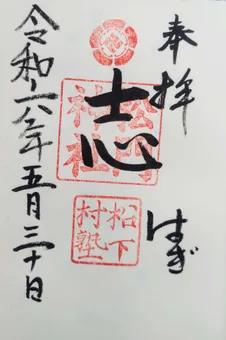 奉拝
はぎ
志
松陰神社
松下村塾
令和六年五月三十日